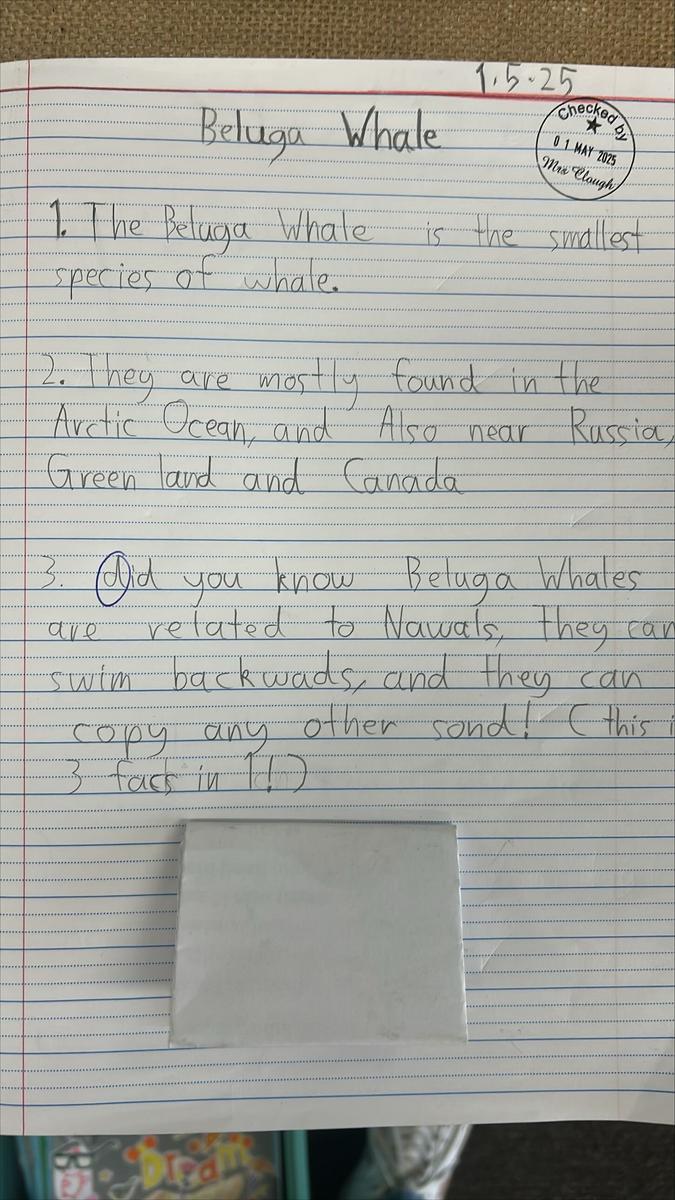 1.5.25
Beluga Whale
Checked by
01 MAY 2025
Mrs Clough
1. The Beluga Whale is the smallest
species of whale.
2. They are mostly found in the
Arctic Ocean, and Also near Russia,
Green land and Canada
3. did you know Beluga Whales
are related to Nawals, they can
swim backwads, and they can
copy any other sond! (this i
3 facts in 1!)
Dream